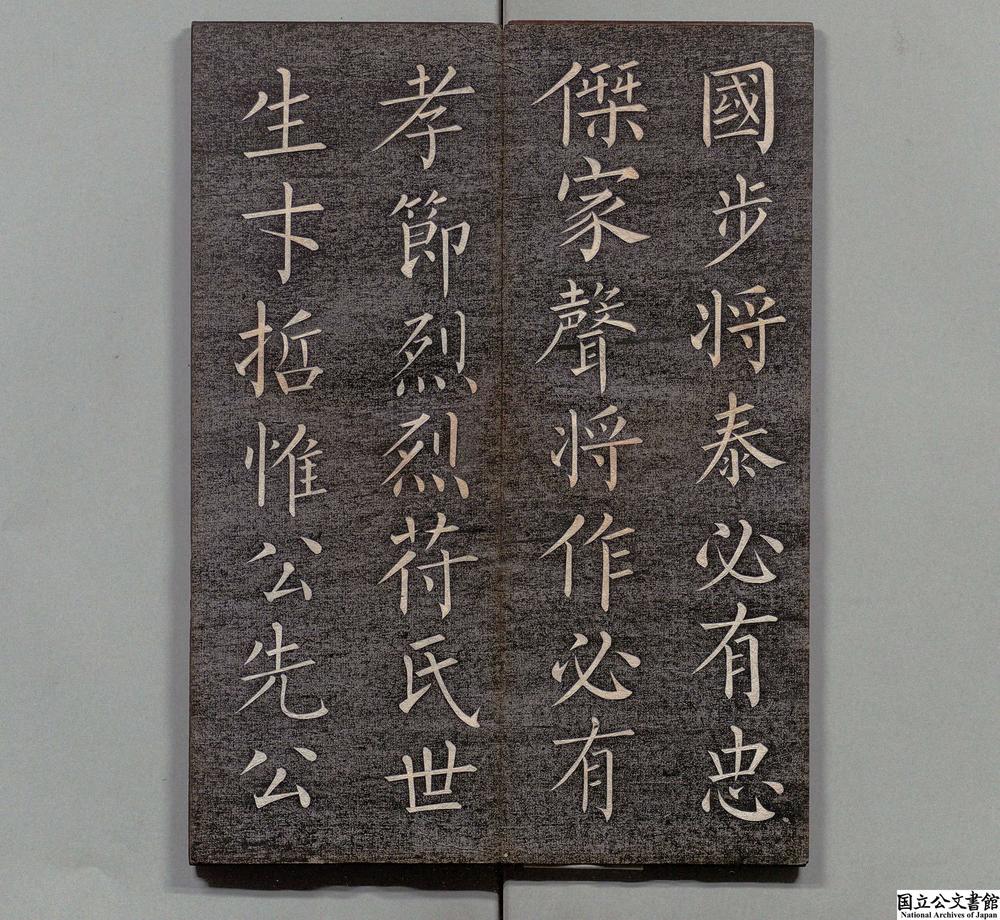 國步将泰必有忠
傑家聲将作必有
孝節烈烈苻氏世
生卞哲惟公先公
国立公文書館
National Archives of Japan